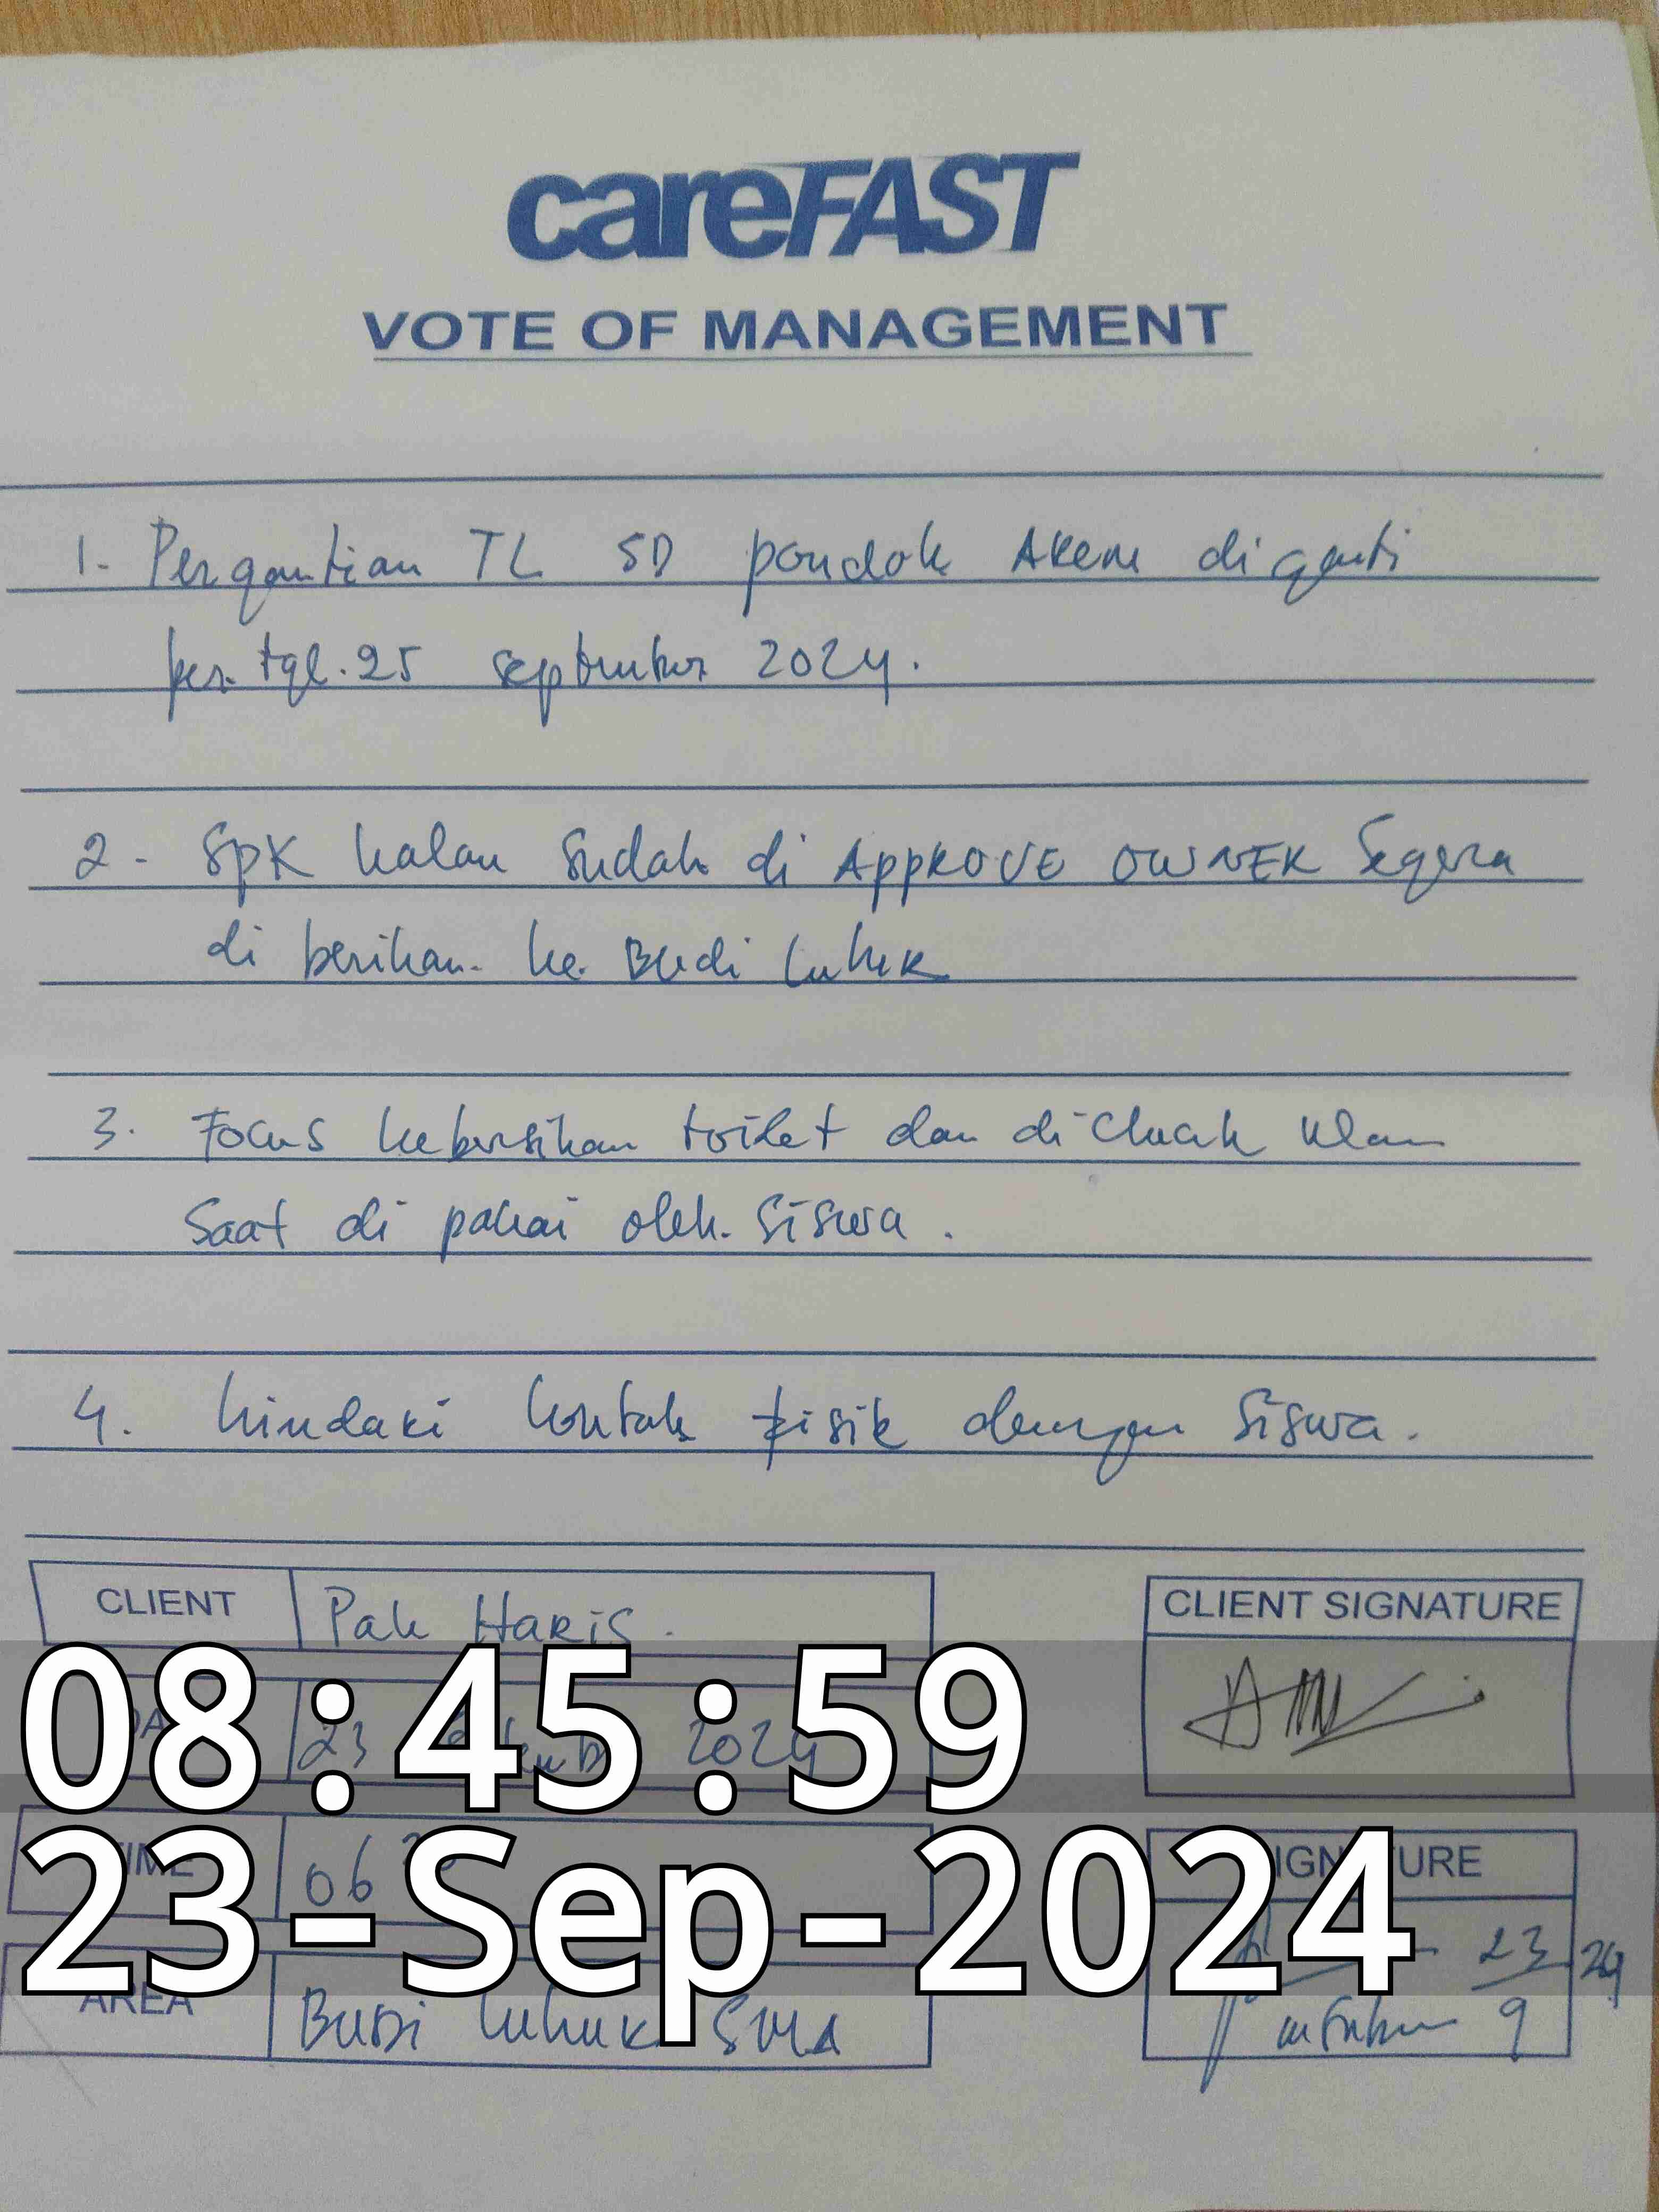 careFAST
VOTE OF MANAGEMENT
1. Pergantian TL SD pondok AREN di ganti
per. tgl. 25 september 2024.
2 - SPK kalau Sudah di APPROVE OWNER Segera
di berikan. ke. Budi Luhur
3. Focus kebersihan toilet dan di
Saat di pakai oleh. Siswa.
4. hindari kontak fisik dengan Siswa.
CLIENT Pak HARIS.
CLIENT SIGNATURE
08:45:59
23 2024
TIME 06
SIGNATURE
23-Sep-2024
23/9 24
AREA BUDI Luhur SMA